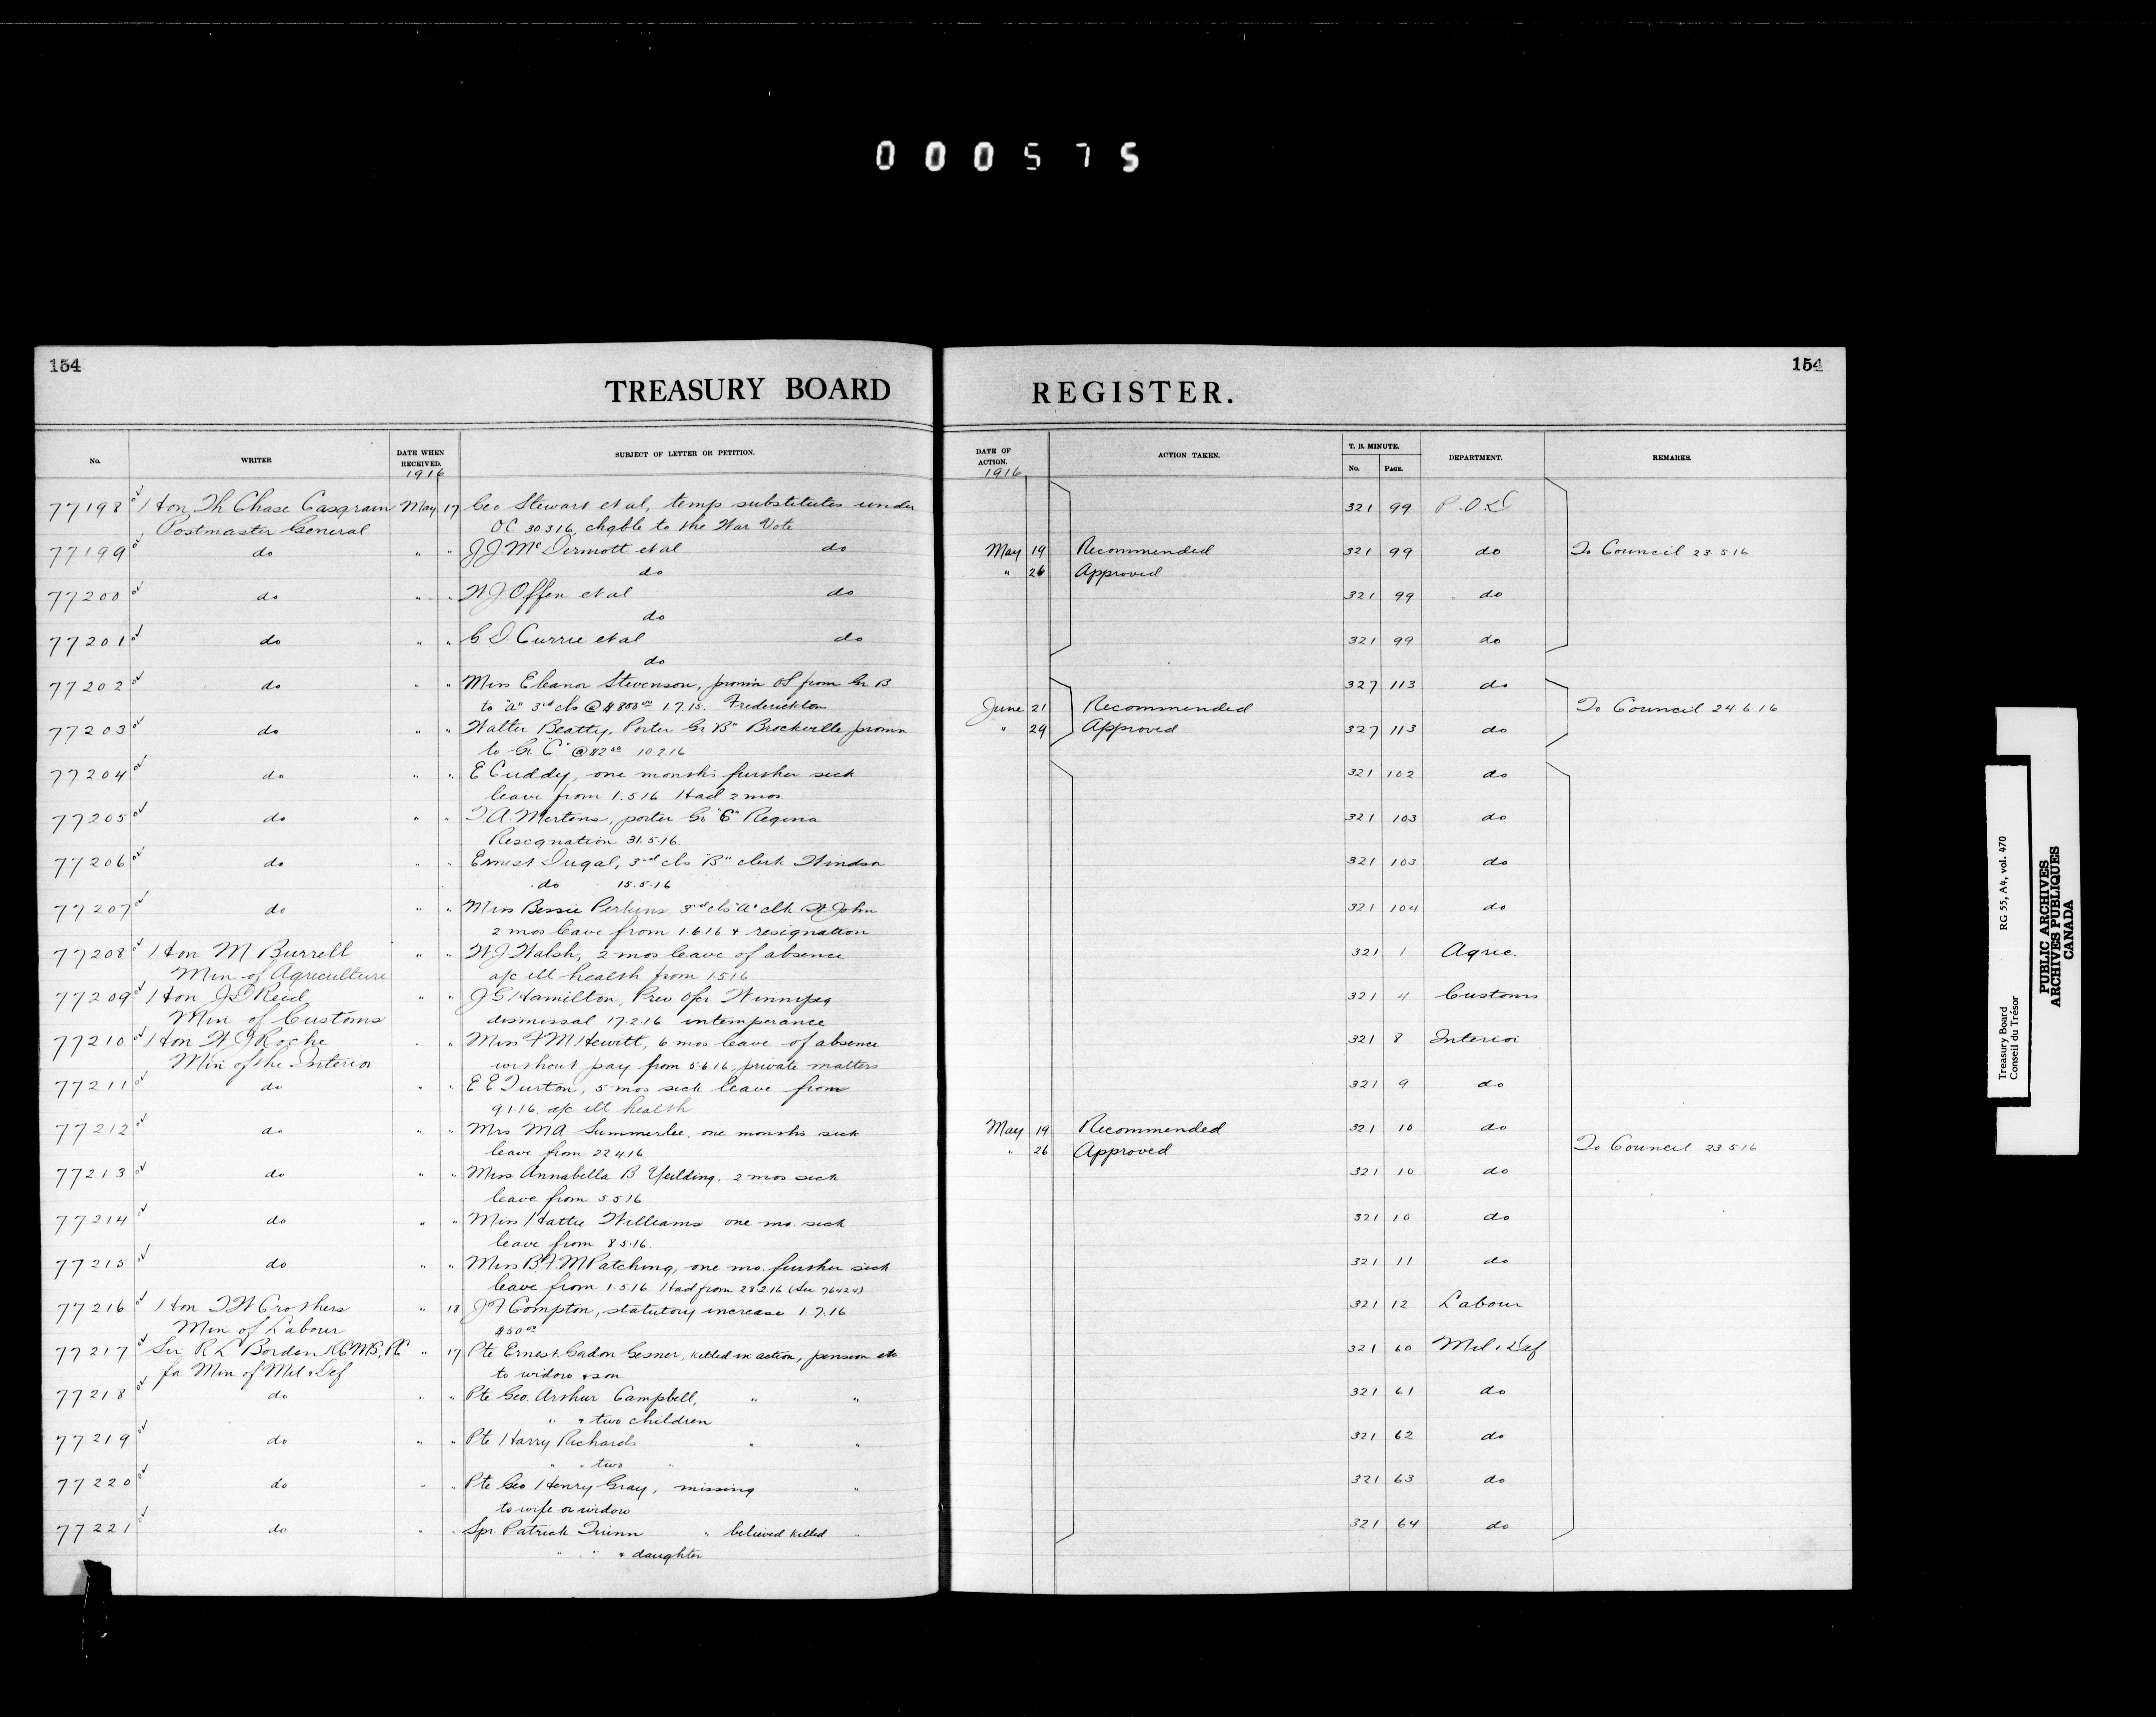 000575
154
TREASURY BOARD
REGISTER.
154
No.
WRITER
DATE WHEN RECEIVED.
1916
SUBJECT OF LETTER OR PETITION.
DATE OF ACTION.
1916
ACTION TAKEN.
T. B. MINUTE.
No.
PAGE.
DEPARTMENT.
REMARKS.
77198 Hon Th Chase Casgrain May 17 Geo Stewart et al, temp substitutes under 321 99 P.O.D
Postmaster General OC 30 3 16, chgble to the War Vote
77199 do " " J J McDermott et al do May 19 Recommended 321 99 do To Council 23 5 16
do " 26 Approved
77200 do " " W J Offen et al do 321 99 do
do
77201 do " " C D. Currie et al do 321 99 do
do
77202 do " " Miss Eleanor Stevenson, promn OS from Gr B 327 113 do
to "A" 3rd cls @ $800 00 1.7.15. Frederickton June 21 Recommended To Council 24 6 16
77203 do " " Walter Beatty, Porter Gr "B" Brockville promn " 29 Approved 327 113 do
to Gr. "C" @ $2 00 10 2 16
77204 do " " E Cuddy, one month's further sick 321 102 do
leave from 1.5 16 Had 2 mos.
77205 do " " T A. Mertens, porter Gr "E" Regina 321 103 do
Resignation 31.5.16.
77206 do " " Ernest Dugal, 3rd cls "B" clerk Windsor 321 103 do
do 15.5.16
77207 do " " Miss Bessie Perkins, 3rd cls "A" clk St John 321 104 do
2 mos leave from 1.6 16 & resignation
77208 Hon M Burrell " " W J Walsh, 2 mos leave of absence 321 1 Agric.
Min of Agriculture a/c ill-health from 1 5 16
77209 Hon J D Reid " " J G Hamilton, Prev Ofr Winnipeg 321 4 Customs
Min of Customs dismissal 17.2.16 intemperance
77210 Hon W J Roche " " Miss F M Hewitt, 6 mos leave of absence 321 8 Interior
Min of the Interior without pay from 5.6.16, private matters
77211 do " " E E Turton, 5 mos sick leave from 321 9 do
9.1.16. a/c ill health
77212 do " " Mrs M A Summerlee, one month's sick May 19 Recommended 321 10 do
leave from 22 4 16 " 26 Approved To Council 23 5 16
77213 do " " Miss Annabella B Yeilding, 2 mos sick 321 10 do
leave from 5 5 16
77214 do " " Miss Hattie Williams one mo. sick 321 10 do
leave from 8.5.16.
77215 do " " Miss B. F. M Patching, one mo. further sick 321 11 do
leave from 1.5 16 Had from 28 2 16 (See 76424)
77216 Hon T W Crothers " 18 J F Compton, statutory increase 1.7.16 321 12 Labour
Min of Labour $50 00
77217 Sir R L Borden KCMG, PC " 17 Pte Ernest Gadon Gesner, killed in action, pension etc 321 60 Mil & Def
for Min of Mil & Def to widow & son
77218 do " " Pte Geo. Arthur Campbell, " " 321 61 do
" & two children
77219 do " " Pte Harry Richards " " 321 62 do
" & two "
77220 do " " Pte Geo Henry Gray, missing " 321 63 do
to wife or widow
77221 do " " Spr. Patrick Quinn " believed killed " 321 64 do
" " & daughter
Treasury Board RG 55, A4, vol. 470
Conseil du Trésor
PUBLIC ARCHIVES
ARCHIVES PUBLIQUES
CANADA